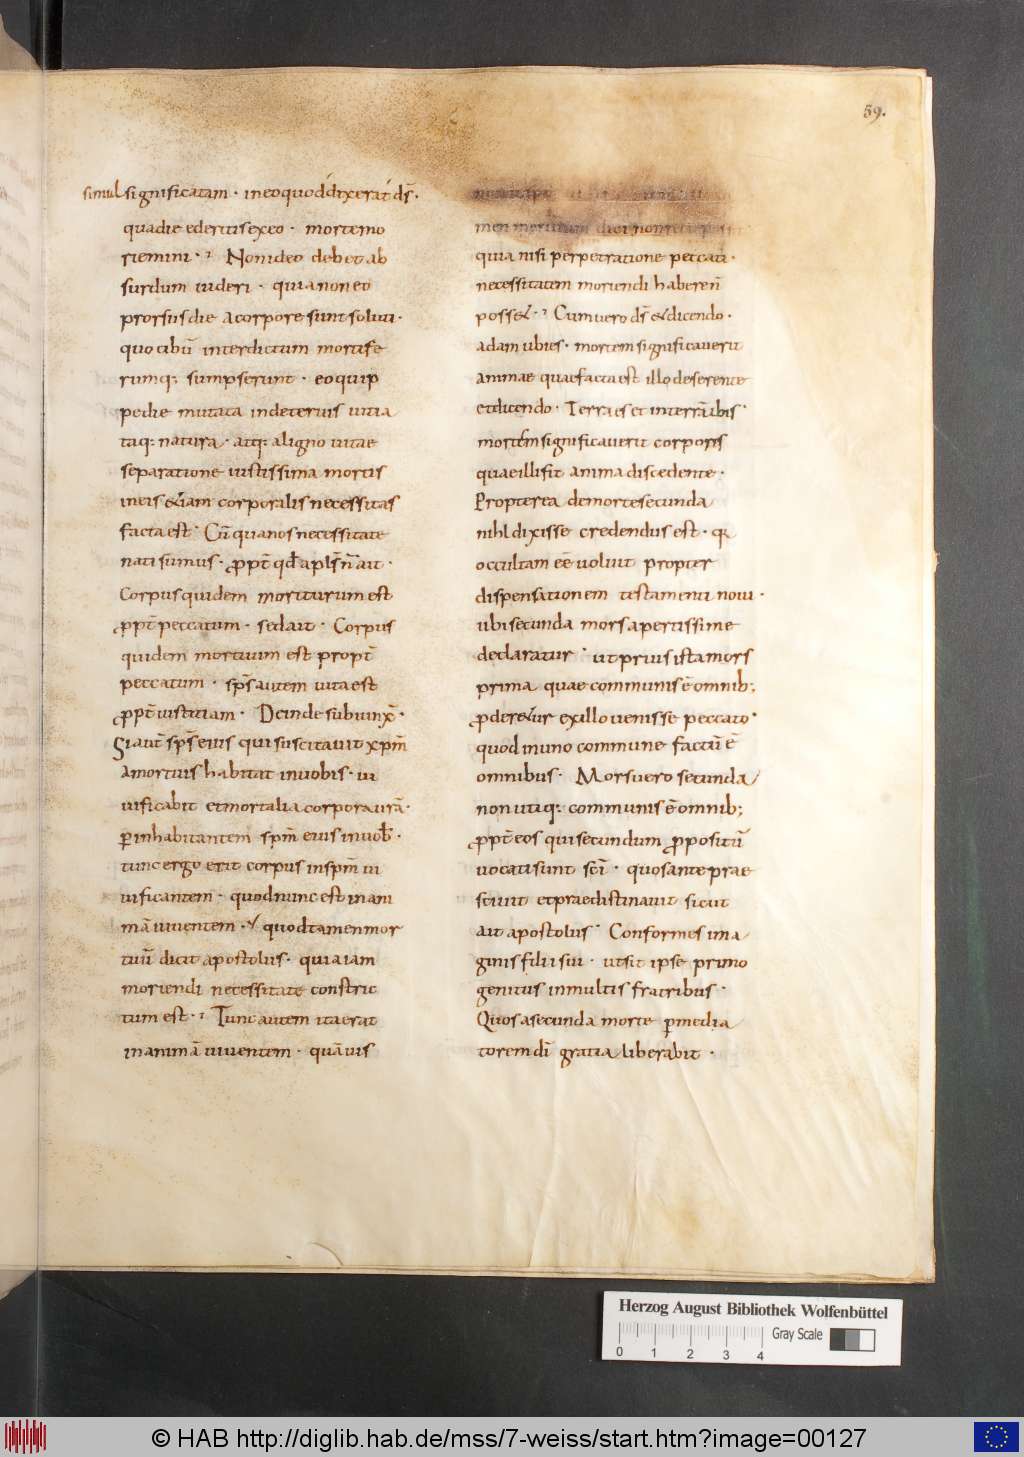 59.
simul significatam · in eo quod dixerat d̄s ·
qua die ederitis ex eo · morte mo
riemini · Non ideo debet ab
surdum uideri · quia non eo
prorsus die a corpore sunt soluti ·
quo cibū interdictum mortife
rumq; sumpserunt · eo quip
pe die mutata in deterius uitia
taq; natura · atq; a ligno uitae
separatione iustissima mortis
in eis &iam corporalis necessitas
facta est · Cū qua nos necessitate
nati sumus · ꝓpt̄ qđ apl̄s n̄ ait ·
Corpus quidem moriturum est
ꝓpt̄ peccatum · sed ait · Corpus
quidem mortuum est propt̄
peccatum · sp̄s autem uita est
ꝓpt̄ iustitiam · Deinde subiunx̄ ·
Si aut̄ sp̄s eius qui suscitauit xp̄m
a mortuis habitat in uobis · ui
uificabit et mortalia corpora urā ·
ꝑ inhabitantem sp̄m eius in uob̄ ·
tunc ergo erit corpus in sp̄m ui
uificantem · quod nunc est in ani
mā uiuentem · quod tamen mor
tuū dicit apostolus · quia iam
moriendi necessitate constric
tum est · Tunc autem ita erat
in animā uiuentem · quāuis
meri mortuum dici non
quia nisi perpetratione peccati ·
necessitatem moriendi haberen̄
poss& · Cum uero d̄s & dicendo ·
adam ubi es · mortem significauerit
animae quae facta est illo deserente
et dicendo · Terra es et in terrā ibis ·
mortēm significauerit corporis
quae illi fit anima discedente ·
Propterea de morte secunda
nihl dixisse credendus est · q̄
occultam eē uoluit propter
dispensationem testamenti noui ·
ubi secunda mors apertissime
declaratur · ut prius ista mors
prima quae communis ē omnib;
ꝓder&ur ex illo uenisse peccato ·
quod in uno commune factū ē
omnibus · Mors uero secunda
non utiq; communis ē omnib;
ꝓpt̄ eos qui secundum ꝓpositū
uocati sunt sc̄i · quos ante prae
sciuit et praedistinauit sicut
ait apostolus · Conformes ima
ginis filii sui · ut sit ipse primo
genitus in multis fratribus ·
Quos a secunda morte ꝑ media
torem dī gratia liberabit ·
Herzog August Bibliothek Wolfenbüttel
Gray Scale
0 1 2 3 4
© HAB http://diglib.hab.de/mss/7-weiss/start.htm?image=00127